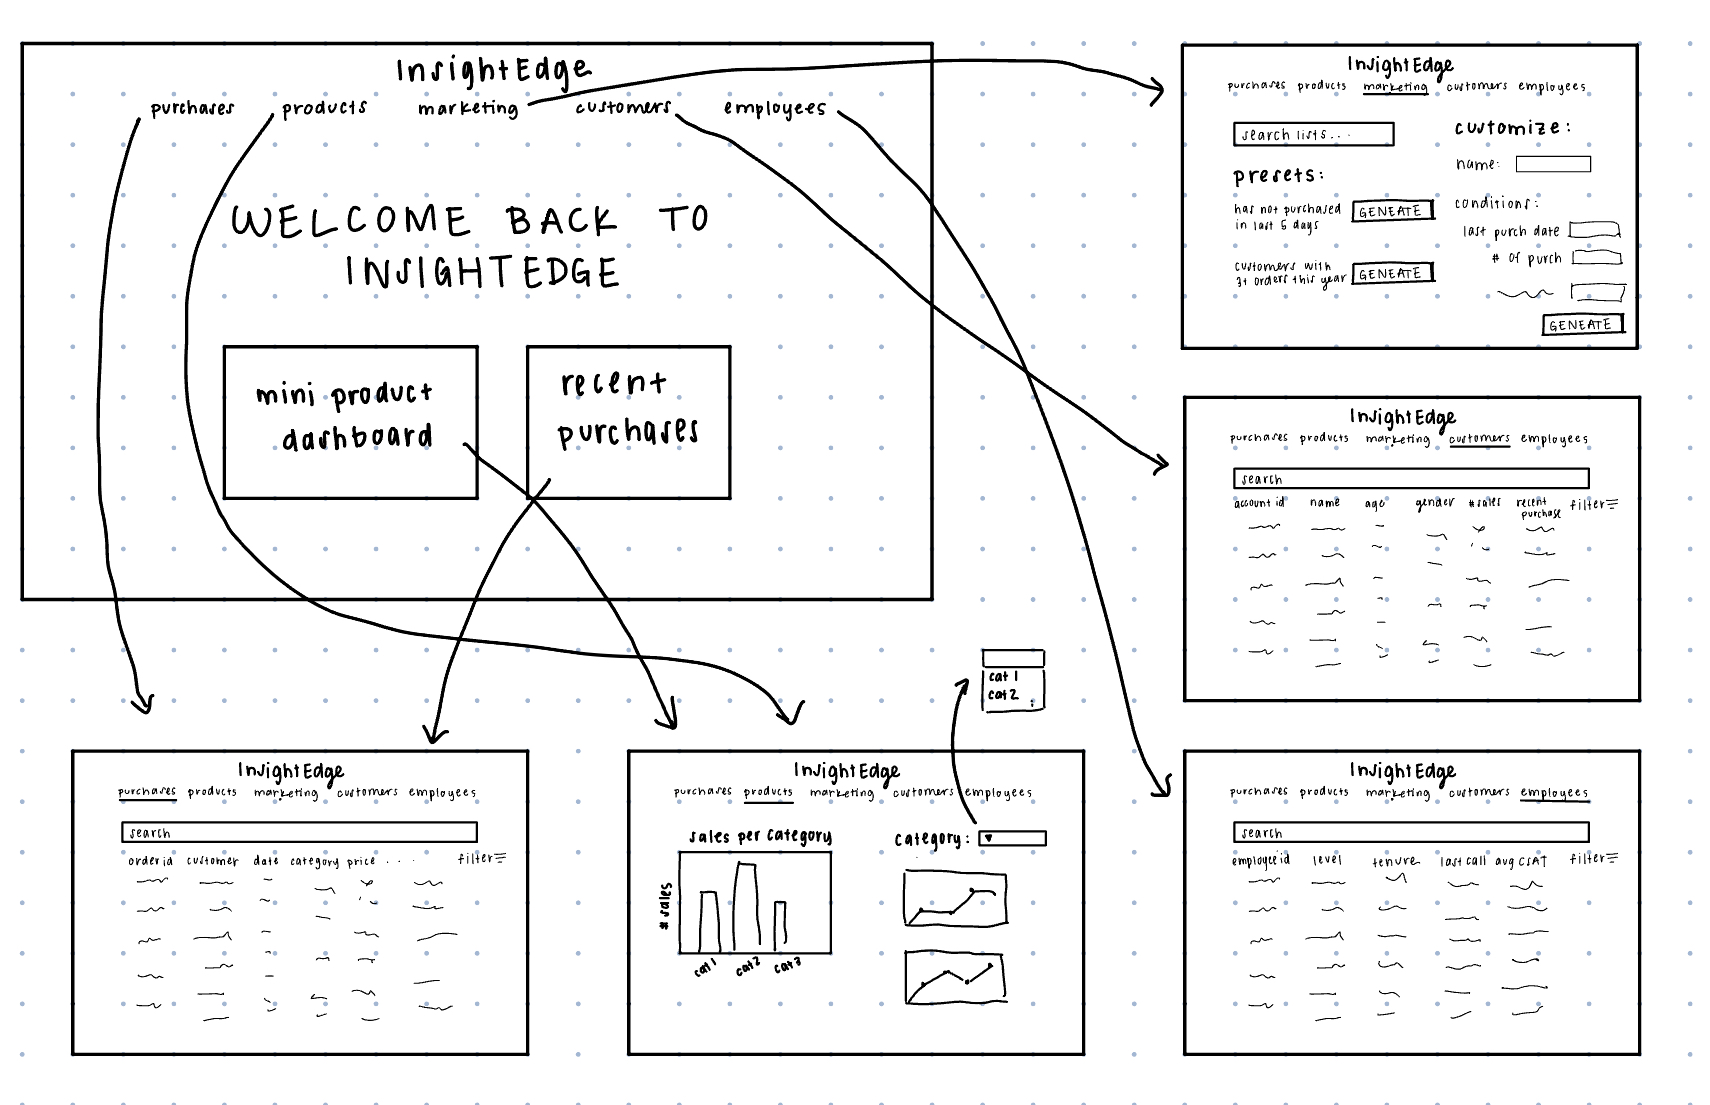 InsightEdge
purchases products marketing customers employees
WELCOME BACK TO
INSIGHTEDGE
mini product
dashboard
recent
purchases
InsightEdge
purchases products marketing customers employees
search lists...
presets:
has not purchased
in last 5 days
GENEATE
customers with
3+ orders this year
GENEATE
customize:
name:
conditions:
last purch date
# of purch
GENEATE
InsightEdge
purchases products marketing customers employees
search
account id name age gender # sales recent
purchase
filter
InsightEdge
purchases products marketing customers employees
search
order id customer date category price ... filter
cat 1
cat 2
InsightEdge
purchases products marketing customers employees
sales per category
# sales
cat 1 cat 2 cat 3
category:
InsightEdge
purchases products marketing customers employees
search
employee id level tenure last call avg CSAT filter